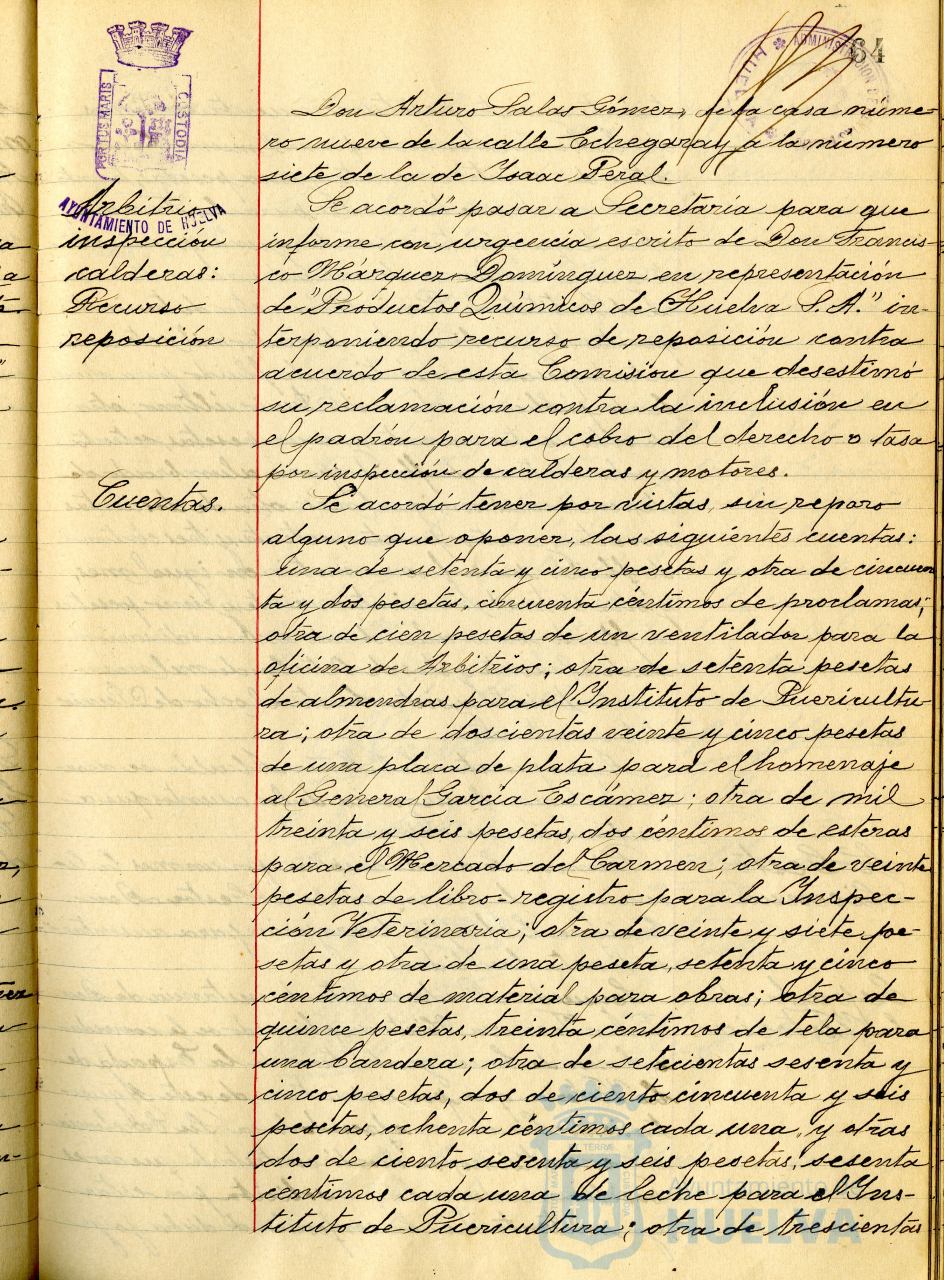 64
PORTUS MARIS
CUSTODIA
AYUNTAMIENTO DE HUELVA
ADMINISTRACION
Don Arturo Salas Gómez, de la casa núme-
ro nueve de la calle Echegaray, a la número
siete de la de Isaac Peral.
Arbitrio
inspección
calderas:
Recurso
reposición
Se acordó pasar a Secretaría para que
informe con urgencia escrito de Don Francis-
co Márquez Domínguez en representación
de "Productos Químicos de Huelva S.A." in-
terponiendo recurso de reposición contra
acuerdo de esta Comisión que desestimó
su reclamación contra la inclusión en
el padrón para el cobro del derecho o tasa
por inspección de calderas y motores.
Cuentas.
Se acordó tener por vistas, sin reparo
alguno que oponer, las siguientes cuentas:
una de setenta y cinco pesetas y otra de cincuen
ta y dos pesetas, cincuenta céntimos de proclamas;
otra de cien pesetas de un ventilador para la
oficina de Arbitrios; otra de setenta pesetas
de almendras para el Instituto de Puericultu-
ra; otra de doscientas veinte y cinco pesetas
de una placa de plata para el homenaje
al General García Escámez; otra de mil
treinta y seis pesetas, dos céntimos de esteras
para el Mercado del Carmen; otra de veinte
pesetas de libro-registro para la Inspec-
ción Veterinaria; otra de veinte y siete pe-
setas y otra de una peseta, setenta y cinco
céntimos de material para obras; otra de
quince pesetas, treinta céntimos de tela para
una bandera; otra de setecientas sesenta y
cinco pesetas, dos de ciento cincuenta y seis
pesetas, ochenta céntimos cada una, y otras
dos de ciento sesenta y seis pesetas, sesenta
céntimos cada una de leche para el Ins-
tituto de Puericultura; otra de trescientas
Ayuntamiento de
HUELVA